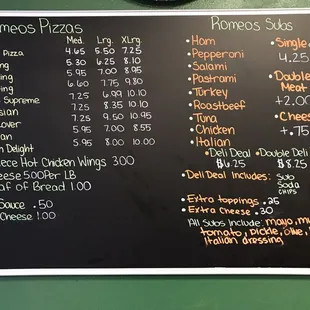 meos Pizzas
Med. Lrg. XLrg.
Pizza 4.65 5.50 7.25
ng 5.30 6.25 8.10
ing 5.95 7.00 8.95
ing 6.60 7.75 9.80
Supreme 7.25 6.09 10.10
sian 7.25 8.35 10.10
over 7.25 9.45 10.95
an 5.95 7.00 8.55
n Delight 5.95 8.00 10.00
iece Hot Chicken Wings 3.00
eese 5.00 Per LB
af of Bread 1.00
Sauce .50
Cheese 1.00
Romeos Subs
• Ham
• Pepperoni
• Salami
• Pastrami
• Turkey
• Roastbeef
• Tuna
• Chicken
• Italian
• Single
4.25
• Double
Meat
+2.00
• Chees
+.75
• Deli Deal • Double Deli
$6.25 $8.25
• Deli Deal Includes: Sub
Soda
Chips
• Extra toppings .25
• Extra Cheese .30
All Subs Include: mayo, mu
tomato, pickle, olive,
Italian dressing